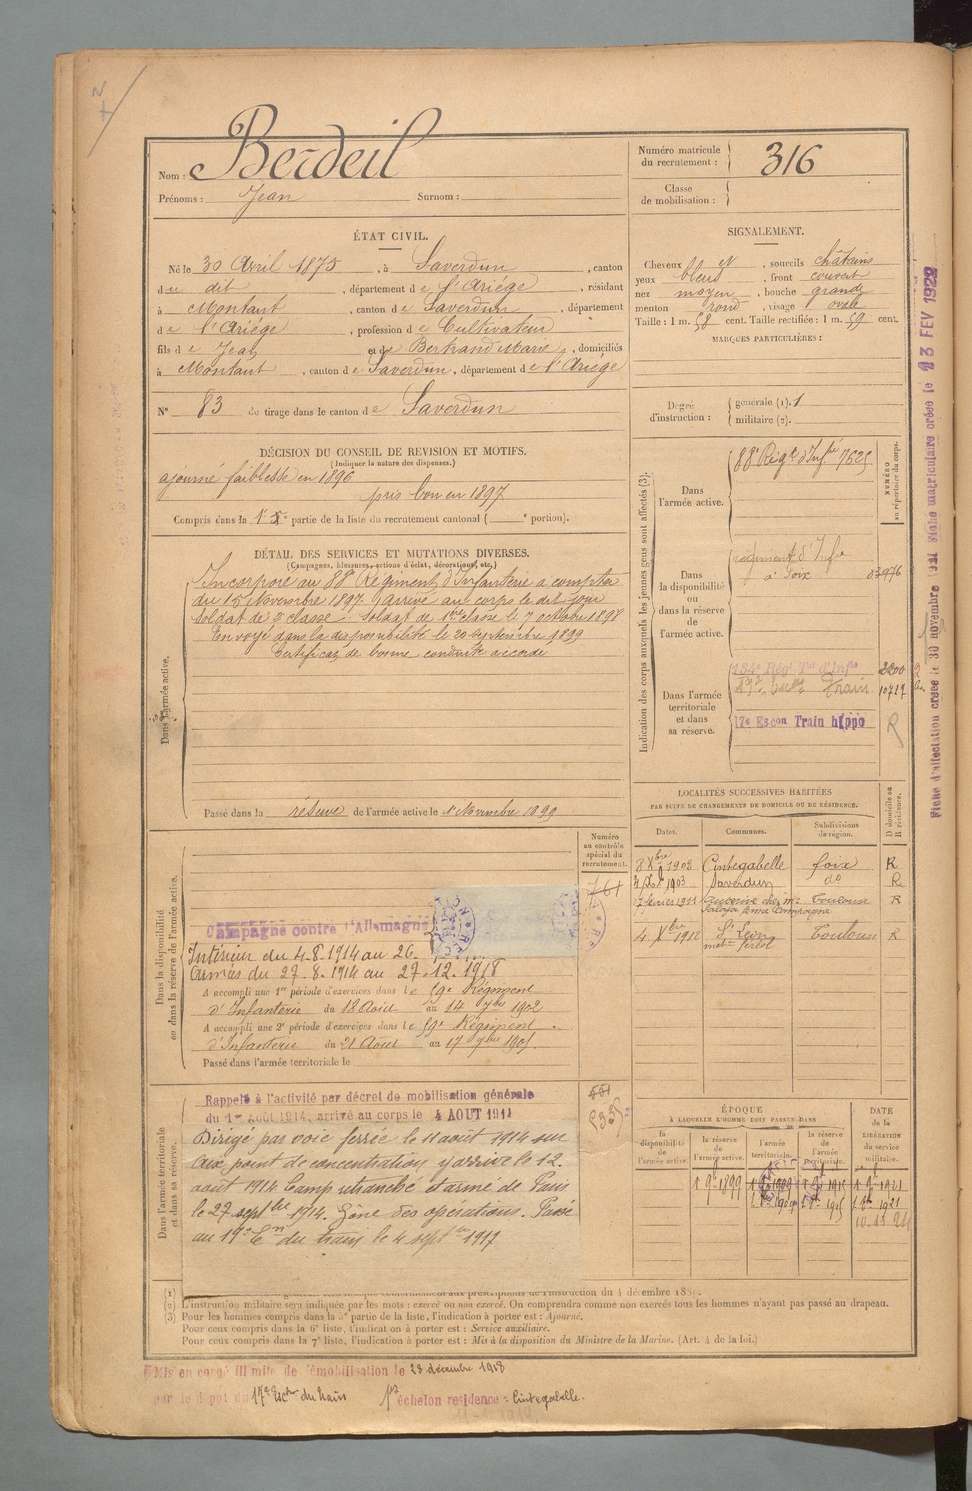 Nom : Berdeil
Prénoms : Jean Surnom :
Numéro matricule du recrutement : 316
Classe de mobilisation :
ÉTAT CIVIL.
Né le 30 Avril 1875, à Saverdun, canton
du dit, département de l'Ariége, résidant
à Montaut, canton de Saverdun, département
de l'Ariége, profession de Cultivateur
fils de Jean et de Bertrand Marie, domiciliés
à Montaut, canton de Saverdun, département de l'Ariége
N° 83 de tirage dans le canton de Saverdun
SIGNALEMENT.
Cheveux et, sourcils châtains
yeux bleus, front couvert
nez moyen, bouche grande
menton rond, visage ovale
Taille : 1 m. 58 cent. Taille rectifiée : 1 m. 59 cent.
MARQUES PARTICULIÈRES :
Degré d'instruction : générale (1). 1
militaire (2).
DÉCISION DU CONSEIL DE REVISION ET MOTIFS.
(Indiquer la nature des dispenses.)
ajourné faiblesse en 1896
pris bon en 1897
Compris dans la 1e partie de la liste du recrutement cantonal ( e portion).
DÉTAIL DES SERVICES ET MUTATIONS DIVERSES.
(Campagnes, blessures, actions d'éclat, décorations, etc.)
Dans l'armée active.
Incorporé au 88e Régiment d'Infanterie a compter
du 15 Novembre 1897. arrivé au corps le dit jour
soldat de 2e classe. Soldat de 1ère classe le 7 octobre 1898
Envoyé dans la disponibilité le 20 septembre 1899
Certificat de bonne conduite accordé
Passé dans la réserve de l'armée active le 1 Novembre 1899
Indication des corps auxquels les jeunes gens sont affectés (3).
NUMÉRO au répertoire du corps.
Dans l'armée active.
88e Régt d'Infie 7625
Dans la disponibilité ou dans la réserve de l'armée active.
régiment d'Infie
à Foix 03976
Dans l'armée territoriale et dans sa réserve.
134e Régt Tal d'Infie 2200
Train 10717
17e Escon Train hippo R
LOCALITÉS SUCCESSIVES HABITÉES
PAR SUITE DE CHANGEMENTS DE DOMICILE OU DE RÉSIDENCE.
Dates. Communes. Subdivisions de région. D domicile ou R résidence.
8 Xbre 1902 Cintegabelle foix R
1903 Saverdun do R
7 février 1911 Auterive chez Mr Toulouse R
4 Xbre 1912 St Léon Toulouse R
Dans la disponibilité ou dans la réserve de l'armée active.
Numéro au contrôle spécial du recrutement.
761
Campagne contre l'Allemagne
Intérieur du 4.8.1914 au 26.
Armées du 27.8.1914 au 27.12.1918
A accompli une 1re période d'exercices dans le 59e Régiment
d'Infanterie du 18 Août au 14 7bre 1902
A accompli une 2e période d'exercices dans le 59e Régiment
d'Infanterie du 21 Août au 17 7bre 1905
Passé dans l'armée territoriale le
Dans l'armée territoriale et dans sa réserve.
Rappelé à l'activité par décret de mobilisation générale
du 1er Août 1914, arrivé au corps le 4 AOUT 1914
Dirigé par voie ferrée le 11 août 1914 sur
Aix point de concentration y arrive le 12.
août 1914. Camp retranché et armé de Paris
le 27 septbre 1914. Zône des opérations. Passé
au 19e En du train le 4 septbre 1917
ÉPOQUE
À LAQUELLE L'HOMME DOIT PASSER DANS
la disponibilité de l'armée active.
la réserve de l'armée active.
l'armée territoriale.
la réserve de l'armée territoriale.
DATE de la LIBÉRATION du service militaire.
1 9bre 1899 1909 1915 1 9bre 1921
1909 1915 1 8bre 1921
10.11.21
(2) L'instruction militaire sera indiquée par les mots : exercé ou non exercé. On comprendra comme non exercés tous les hommes n'ayant pas passé au drapeau.
(3) Pour les hommes compris dans la 5e partie de la liste, l'indication à porter est : Ajourné.
Pour ceux compris dans la 6e liste, l'indication à porter est : Service auxiliaire.
Pour ceux compris dans la 7e liste, l'indication à porter est : Mis à la disposition du Ministre de la Marine. (Art. 4 de la loi.)
Mis en congé illimité de démobilisation le 28 décembre 1918
par le dépot du 17e Escn du train 1er échelon résidence : Cintegabelle.
Fiche d'affectation créée le 30 novembre 1921 Fiche matriculaire créée le 13 FEV 1922